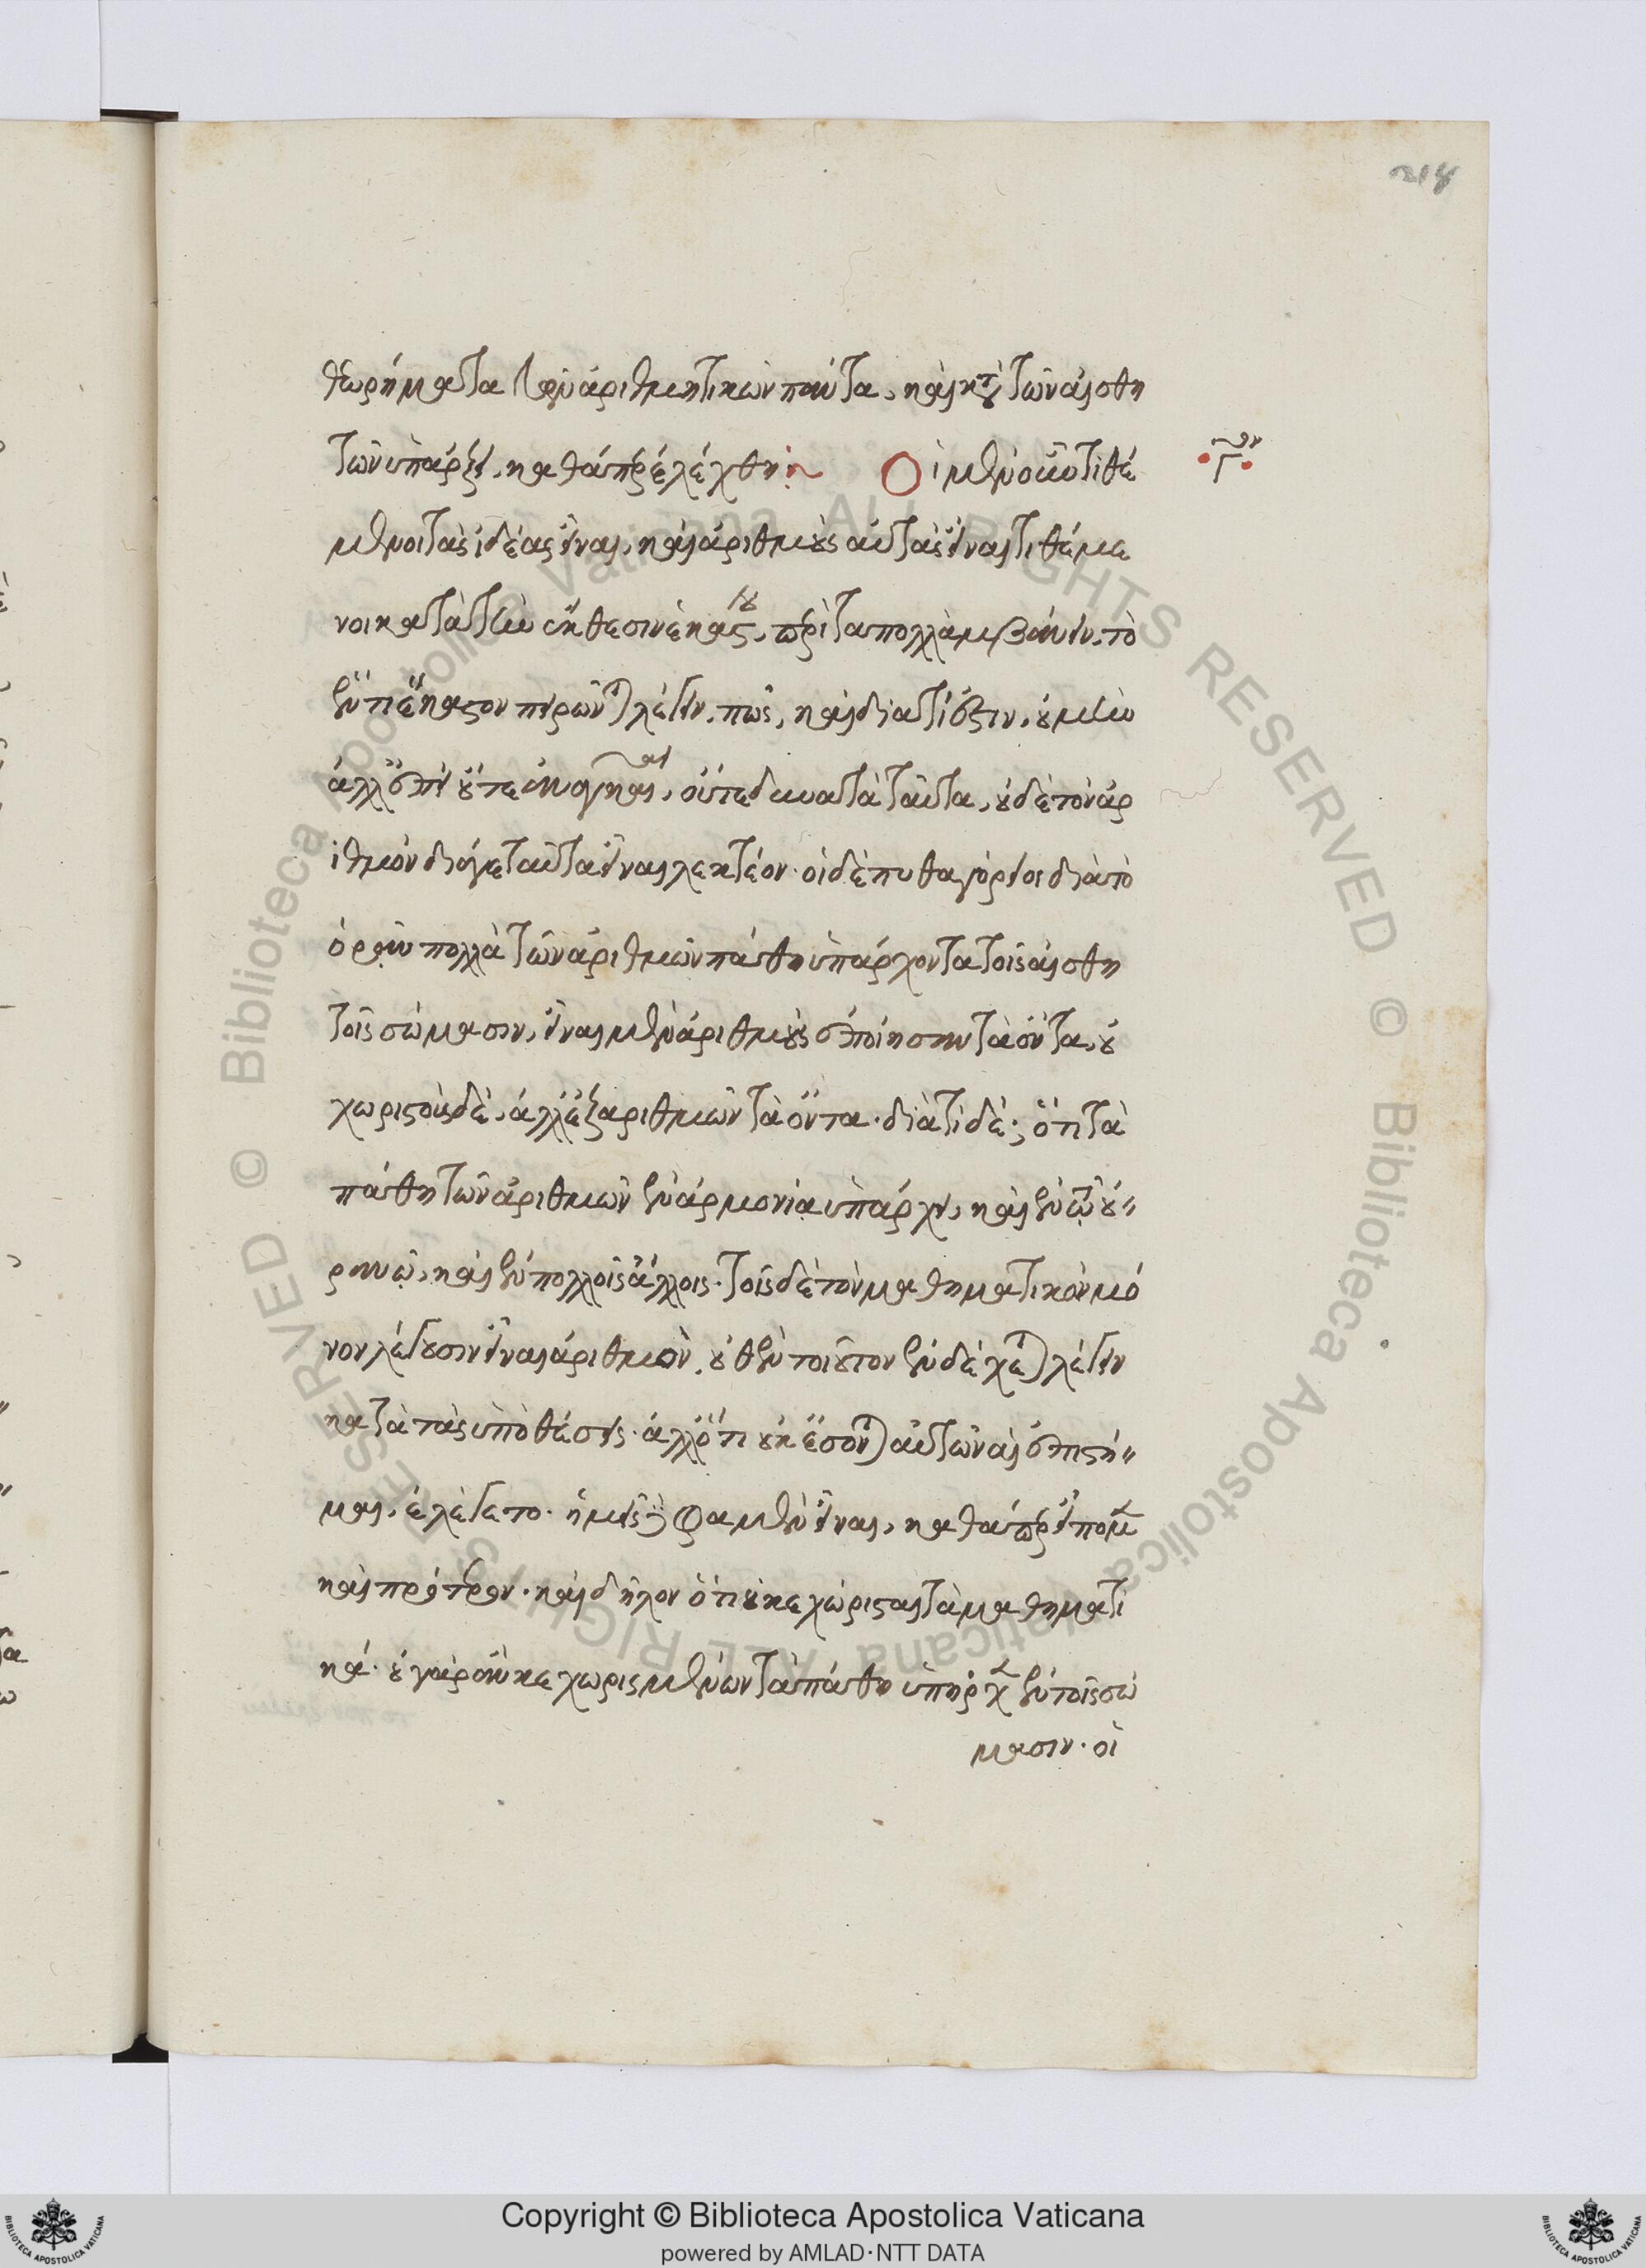 θεωρήματα ἐν ἀριθμητικῶν πάντα, καὶ κατὰ τῶν αἰσθη
τῶν ὑπάρξει, καθάπερ ἐλέχθη: Οἱ μὲν οὖν τιθέ
·Γον·
μενοι τὰς ἰδέας εἶναι, καὶ ἀριθμοὺς αὐτὰς εἶναι τιθέμε
νοι κατὰ τὴν ἔκθεσιν ἑκάστου, περὶ τὰ πολλὰ λαμβάνειν, τὸ
ἕν τι ἕκαστον πειρῶνται λέγειν, πῶς, καὶ διατί ἔστιν, οὐ μὴν
ἀλλ' ἐπεὶ οὔτε ἀναγκαῖαι, οὔτε δυνατὰ ταῦτα, οὐδὲ τὸν ἀρ
ιθμὸν διάγε ταῦτα εἶναι λεκτέον· οἱ δὲ πυθαγόρειοι διὰ τὸ
ὁρᾶν πολλὰ τῶν ἀριθμῶν πάθη ὑπάρχοντα τοῖς αἰσθη
τοῖς σώμασιν, εἶναι μὲν ἀριθμοὺς ἐποίησαν τὰ ὄντα, οὐ
χωριστοὺς δὲ, ἀλλ' ἐξ ἀριθμῶν τὰ ὄντα· διατί δέ; ὅτι τὰ
πάθη τῶν ἀριθμῶν ἐν ἁρμονίᾳ ὑπάρχει, καὶ ἐν τῷ οὐ
ρανῷ, καὶ ἐν πολλοῖς ἄλλοις· τοῖς δὲ τὸν μαθηματικὸν μό
νον λέγουσιν εἶναι ἀριθμὸν, οὐθὲν τοιοῦτον ἐνδέχεται λέγειν
κατὰ τὰς ὑποθέσεις· ἀλλ' ὅτι οὐκ ἔσονται αὐτῶν αἱ ἐπιστῆ
μαι, ἐλέγετο· ἡμεῖς δέ φαμεν εἶναι, καθάπερ εἴπομεν
καὶ πρότερον· καὶ δῆλον ὅτι οὐ κεχώρισται τὰ μαθηματι
κά· οὐ γὰρ ἂν κεχωρισμένων τὰ πάθη ὑπῆρχεν ἐν τοῖς σώ
μασιν· οἱ
Copyright © Biblioteca Apostolica Vaticana
powered by AMLAD·NTT DATA